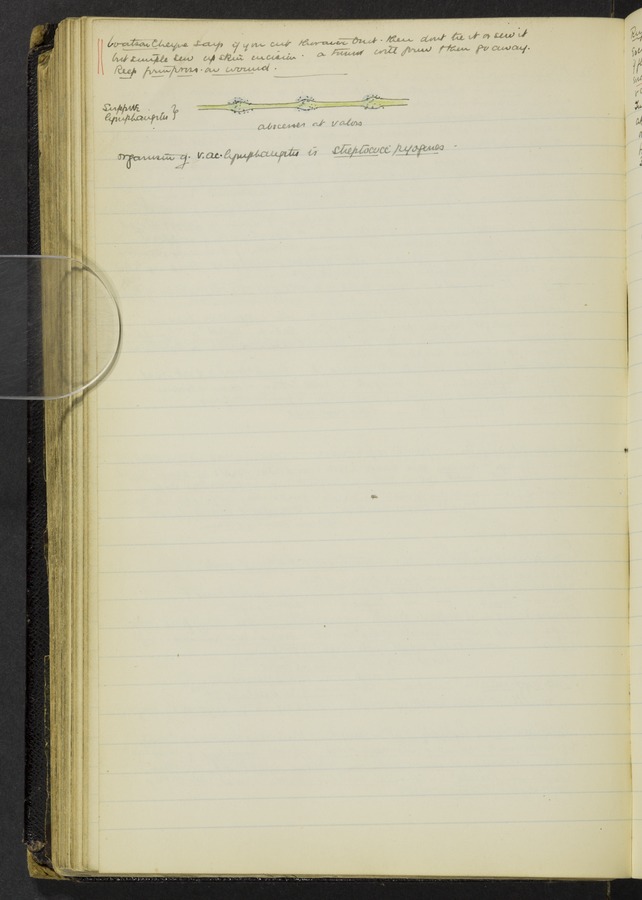 Watson Cheyne says if you cut thoracic Duct. then dont tie it or sew it
but simple sew up skin incision. a tumour will form & then go away.
Keep firm press. on wound.
Suppve
lymphangitis }
abscesses at valves
organism of v. ac. lymphangitis is streptococci pyogenes.